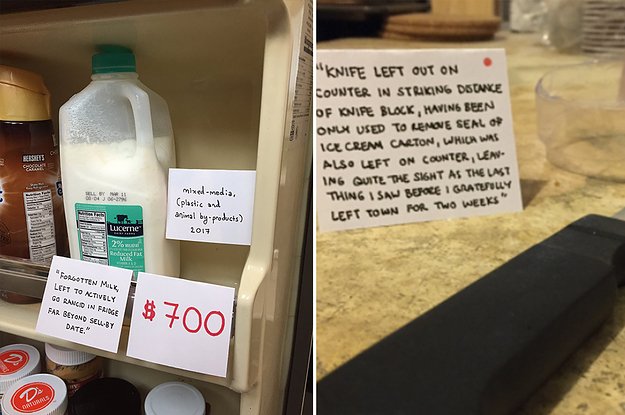 HERSHEY'S
CHOCOLATE
CARAMEL
SELL BY MAR 11
Nutrition Facts
Lucerne
DAIRY FARMS
2% MILKFAT
Reduced Fat
Milk
mixed-media,
(plastic and
animal by-products)
2017
"FORGOTTEN MILK,
LEFT TO ACTIVELY
GO RANCID IN FRIDGE
FAR BEYOND SELL-BY
DATE."
$700
D's
NATURALS
"KNIFE LEFT OUT ON
COUNTER IN STRIKING DISTANCE
OF KNIFE BLOCK, HAVING BEEN
ONLY USED TO REMOVE SEAL OF
ICE CREAM CARTON, WHICH WAS
ALSO LEFT ON COUNTER, LEAV-
ING QUITE THE SIGHT AS THE LAST
THING I SAW BEFORE I GRATEFULLY
LEFT TOWN FOR TWO WEEKS"